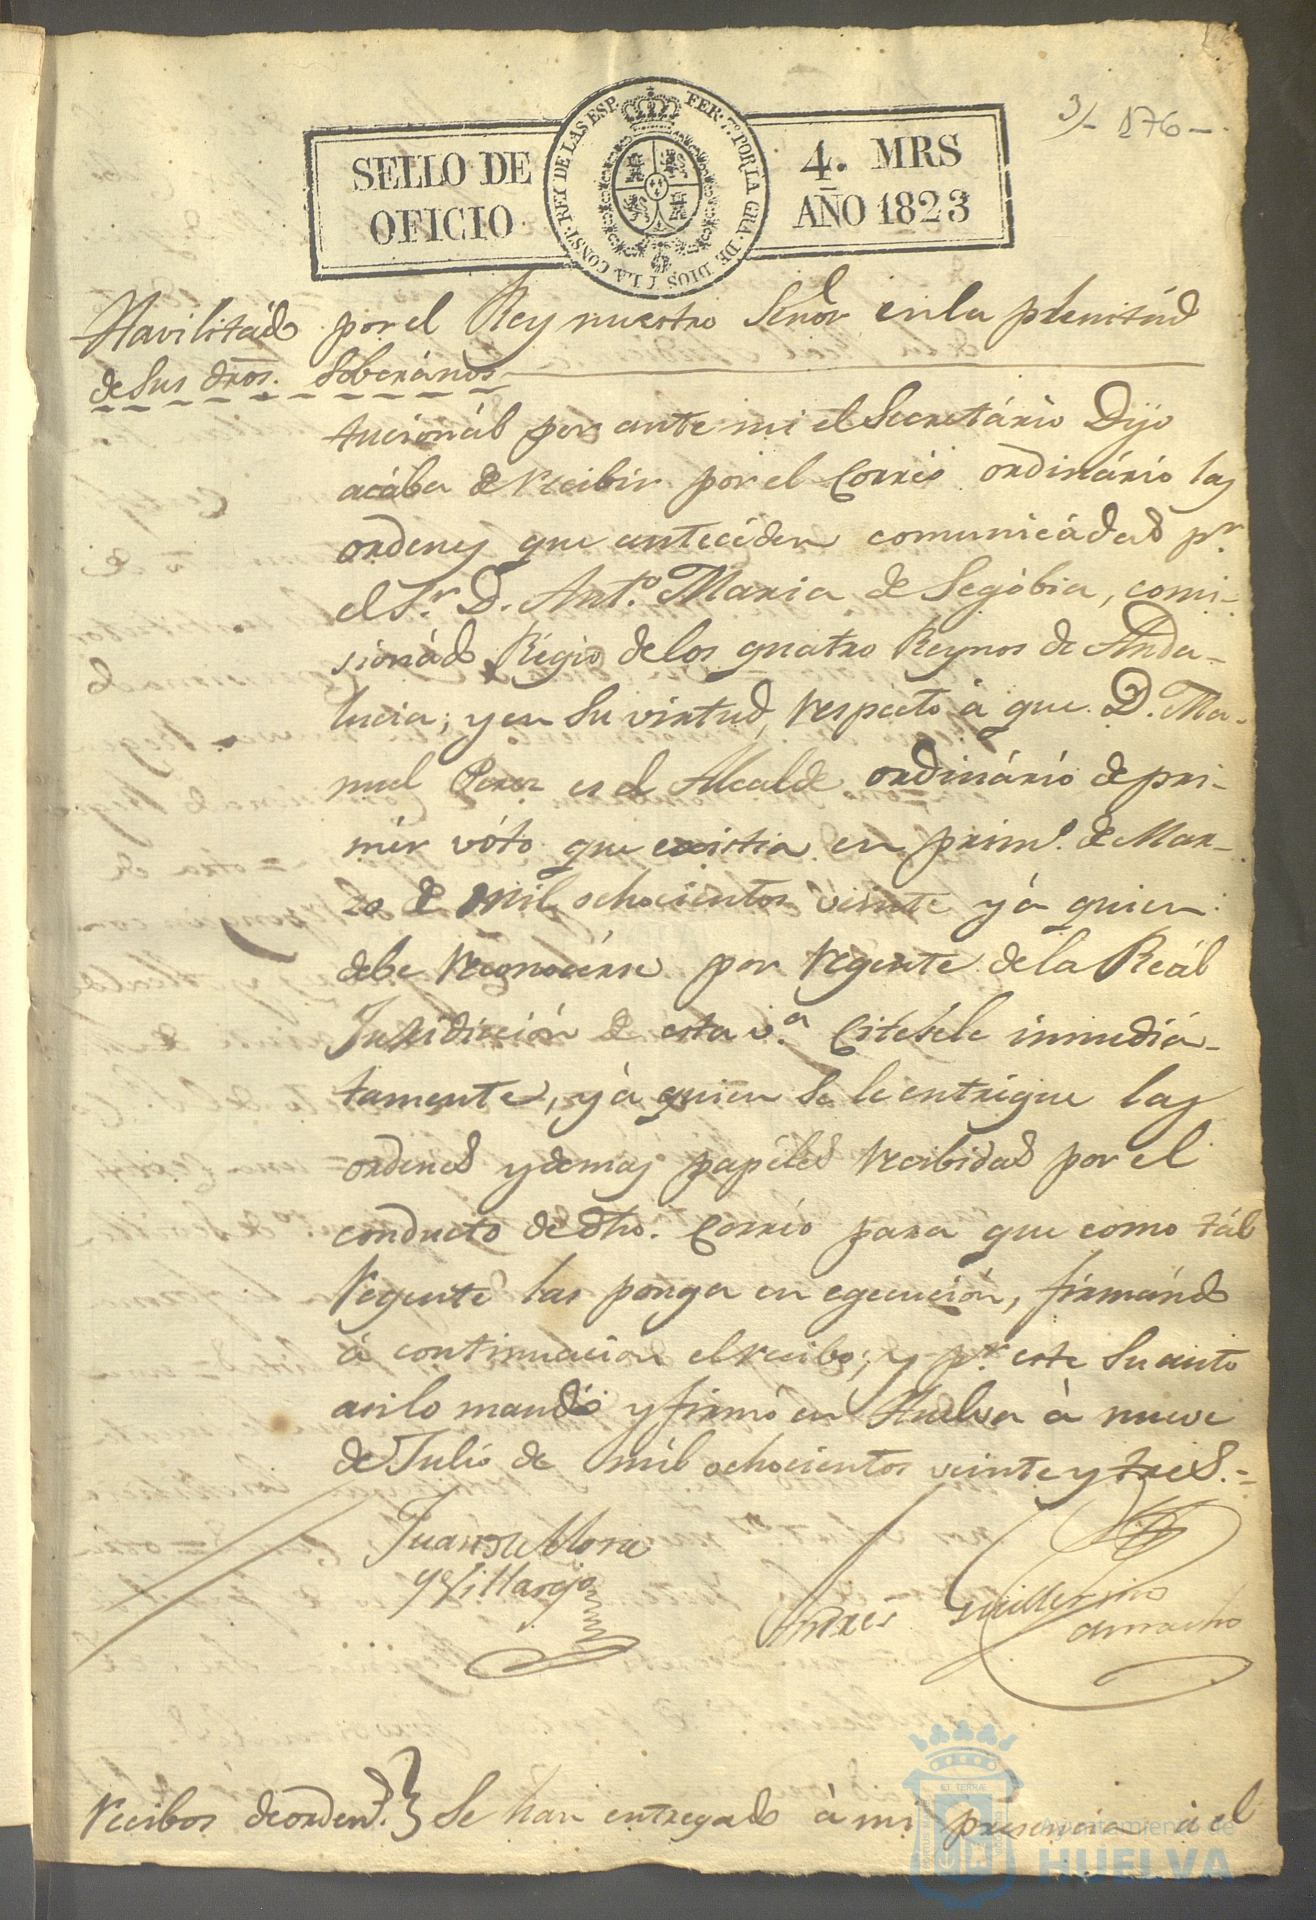 3/- 176-
SELLO DE
OFICIO
FER. 7º POR LA GRA. DE DIOS Y LA CONST. REY DE LAS ESP.
4. MRS
AÑO 1823
Havilitádo por el Rey nuestro Señor en la plenitúd
de sus dros. Soberános
tucionál por ante mi el Secretário Dijo
acába de recibir por el Corréo ordinário las
ordenes que antecéden comunicádas pr.
el Sr. D. Antº. Maria de Segóbia, comi-
sionádo Régio de los quatro Reynos de Anda-
lucia; y en su virtud, respécto á que D. Ma-
nuel Perez es el Alcalde ordinário de pri-
mér vóto que existia en primº. de Mar-
zo de mil ochocientos veinte y á quien
debe reconocérse por regente de la Reál
Jurisdicción de esta vª. Citesele inmediá-
tamente, y á quien se le entregue las
ordenes y demas papéles recibidas por el
conducto de dho. Corréo para que como tál
regente las ponga en egecución, firmándo
á continuacion el recibo; y pr. este su auto
asi lo mandó y firmó en Huelva á nueve
de Julio de mil ochocientos veinte y tres.=
Juan de Mora
y Villarejo
Andrés Guillermo
Camacho
Recibos de ordens. } Se han entregado á mi presencia á el
ET TERRÆ
Ayuntamiento de
HUELVA